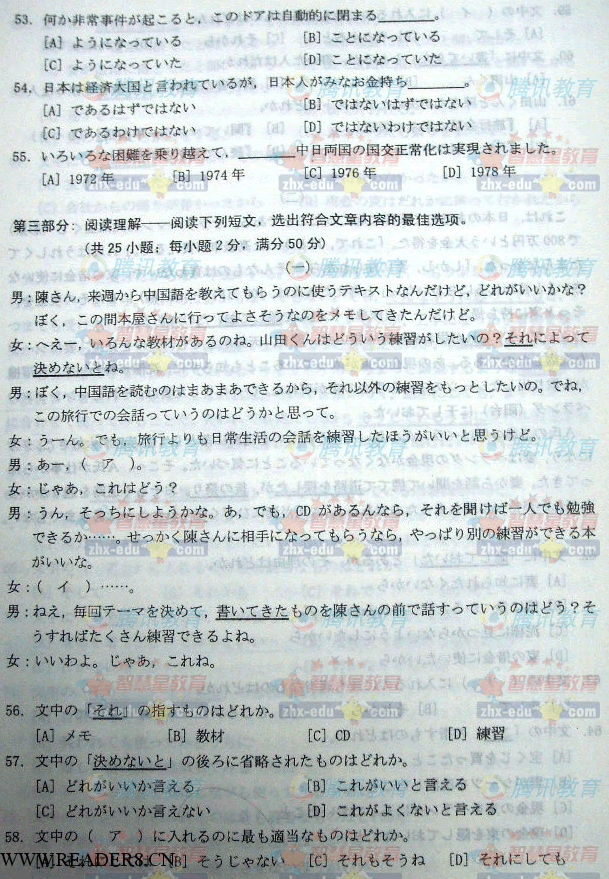 53．何か非常事件が起こると，このドアは自動的に閉まる＿＿＿＿。
[A] ようになっている [B] ことになっている
[C] ようになっていた [D] ことになっていた
54．日本は経済大国と言われているが，日本人がみなお金持ち＿＿＿＿。
[A] であるはずではない [B] ではないはずではない
[C] であるわけではない [D] ではないわけではない
55．いろいろな困難を乗り越えて，＿＿＿＿中日両国の国交正常化は実現されました。
[A] 1972 年 [B] 1974 年 [C] 1976 年 [D] 1978 年
第三部分：阅读理解——阅读下列短文，选出符合文章内容的最佳选项。
（共 25 小题；每小题 2 分，满分 50 分）
（一）
男：陳さん，来週から中国語を教えてもらうのに使うテキストなんだけど，どれがいいかな？
ぼく，この間本屋さんに行ってよさそうなのをメモしてきたんだけど。
女：へえー，いろんな教材があるのね。山田くんはどういう練習がしたいの？それによって
決めないとね。
男：ぼく，中国語を読むのはまあまあできるから，それ以外の練習をもっとしたいの。でね，
この旅行での会話っていうのはどうかと思って。
女：うーん。でも，旅行よりも日常生活の会話を練習したほうがいいと思うけど。
男：あー，（　ア　）。
女：じゃあ，これはどう？
男：うん，そっちにしようかな。あ，でも，CD があるんなら，それを聞けば一人でも勉強
できるか……。せっかく陳さんに相手になってもらうなら，やっぱり別の練習ができる本
がいいな。
女：（　イ　）……。
男：ねえ，毎回テーマを決めて，書いてきたものを陳さんの前で話すっていうのはどう？そ
うすればたくさん練習できるよね。
女：いいわよ。じゃあ，これね。
56．文中の「それ」の指すものはどれか。
[A] メモ [B] 教材 [C] CD [D] 練習
57．文中の「決めないと」の後ろに省略されたものはどれか。
[A] どれがいいか言える [B] これがいいと言える
[C] どれがいいか言えない [D] これがよくないと言える
58．文中の（　ア　）に入れるのに最も適当なものはどれか。
[B] そうじゃない [C] それもそうね [D] それにしても
WWW.READER8.CN
腾讯教育
智慧星教育
zhx-edu.com